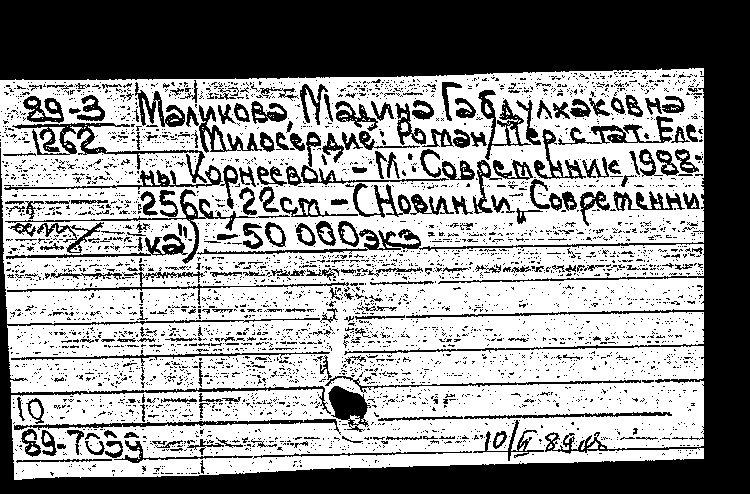 89-3 Маликова, Мадина Габдулхаковна
1262 Милосердие: Роман/Пер. с тат. Еле-
ны Корнеевой. - М.: Современник, 1988.-
256с.; 22см. - (Новинки „Современни-
ка") - 50 000экз
10
89-7039
10/II 89